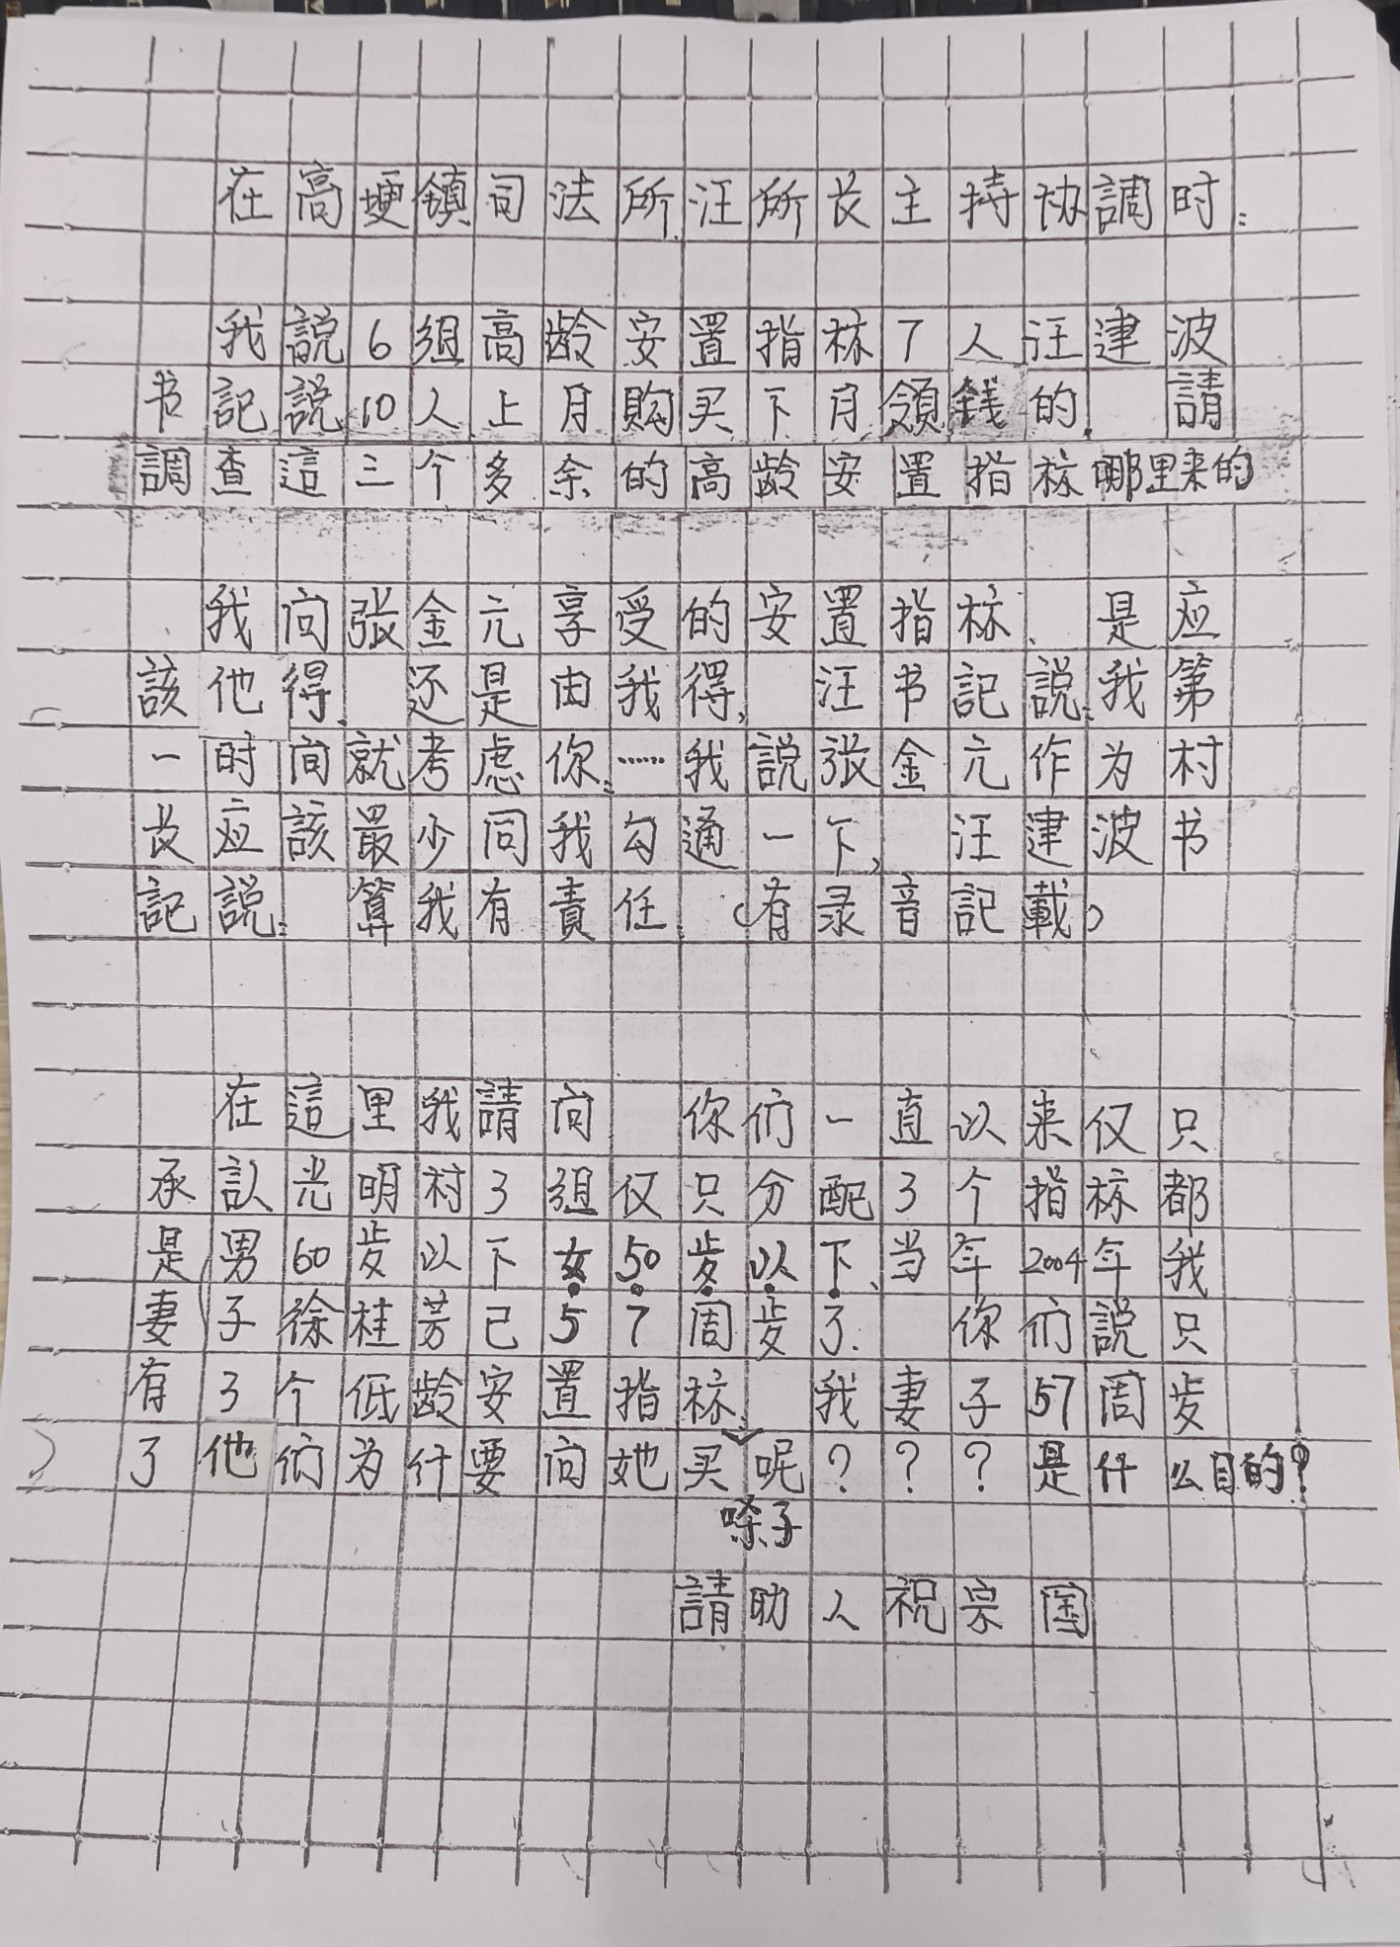 在高埂鎮司法所.汪所长主持协調时:
我説6组高龄安置指标7人汪建波
书記説10人上月購买下月領錢的.請
調查這三个多余的高龄安置指标哪里来的
我向張金元享受的安置指标.是应
該他得.还是由我得,汪书記説:我第
一时间就考虑你:……我説張金元作为村
长应該最少同我勾通一下,汪建波书
記説:算我有責任.(有录音記載)
在這里我請问 你们一直以来仅只
承認光明村3组仅只分配3个指标都
是(男60岁以下女50岁以下、当年2004年我
妻子徐桂芳已57周岁了.你们説只
有3个低龄安置指标.我妻子57周岁
了他们为什要向她买呢???是什么目的?
嗓子
請助人祝宗国